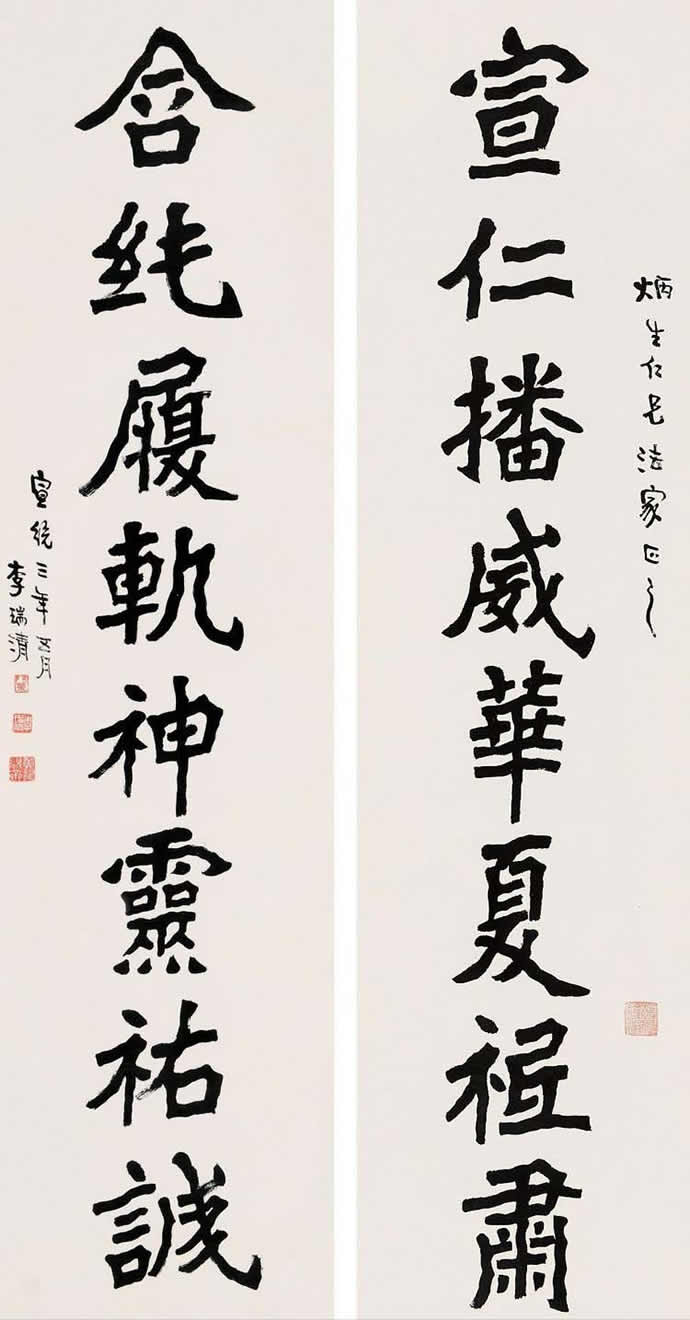 炳生仁兄法家正之
宣仁播威華夏祗肅
含純履軌神靈祐誠
宣統三年五月
李瑞清